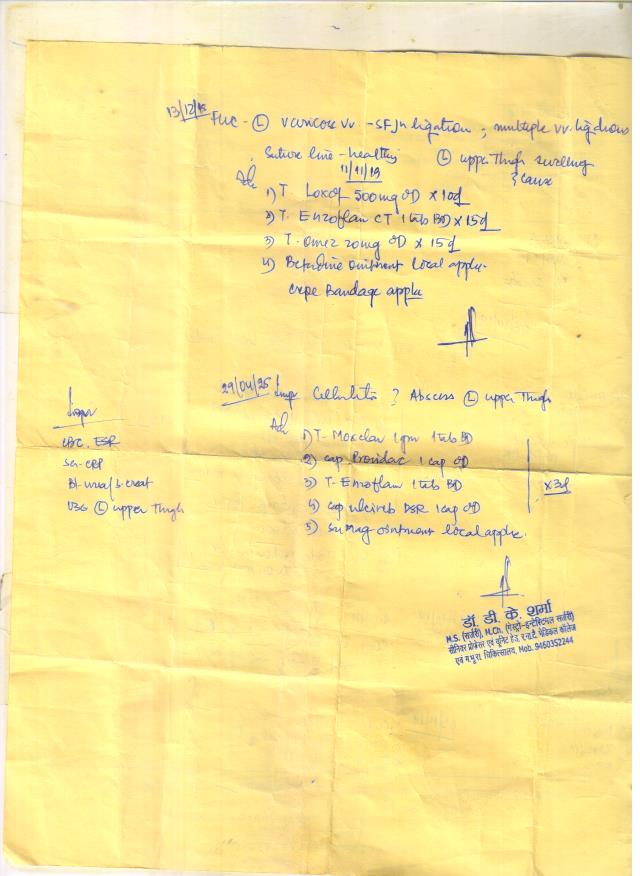 13/12/19 FUC - Ⓛ varicose vv. - SFJn ligation ; multiple vv. ligations
Suture line - healthy Ⓛ upper Thigh swelling
11/11/19
Adv
1) T. Loxof 500mg OD x 10d
2) T. Enzoflam CT 1 tab BD x 15d
3) T. Omez 20mg OD x 15d
4) Betadine ointment local apply.
Crepe Bandage apply
29/04/25 Imp Cellulitis ? Abscess Ⓛ upper Thigh
Adv
1) T- Moxclav 1gm 1 tab BD
2) Cap 1 cap OD
3) T- Enzoflam 1 tab BD
x 3d
4) Cap DSR 1 cap OD
5) SuMag ointment local apply.
CBC. ESR
Ser-CRP
Bl-urea/S.creat
USG Ⓛ upper Thigh
डॉ. डी. के. शर्मा
M.S. (सर्जरी), M.Ch. (गेस्ट्रो-इन्टेस्टिनल सर्जरी)
सीनियर प्रोफेसर एवं यूनिट हेड, र.ना.टै. मेडिकल कॉलेज
एवं चिकित्सालय, Mob. 9460352244